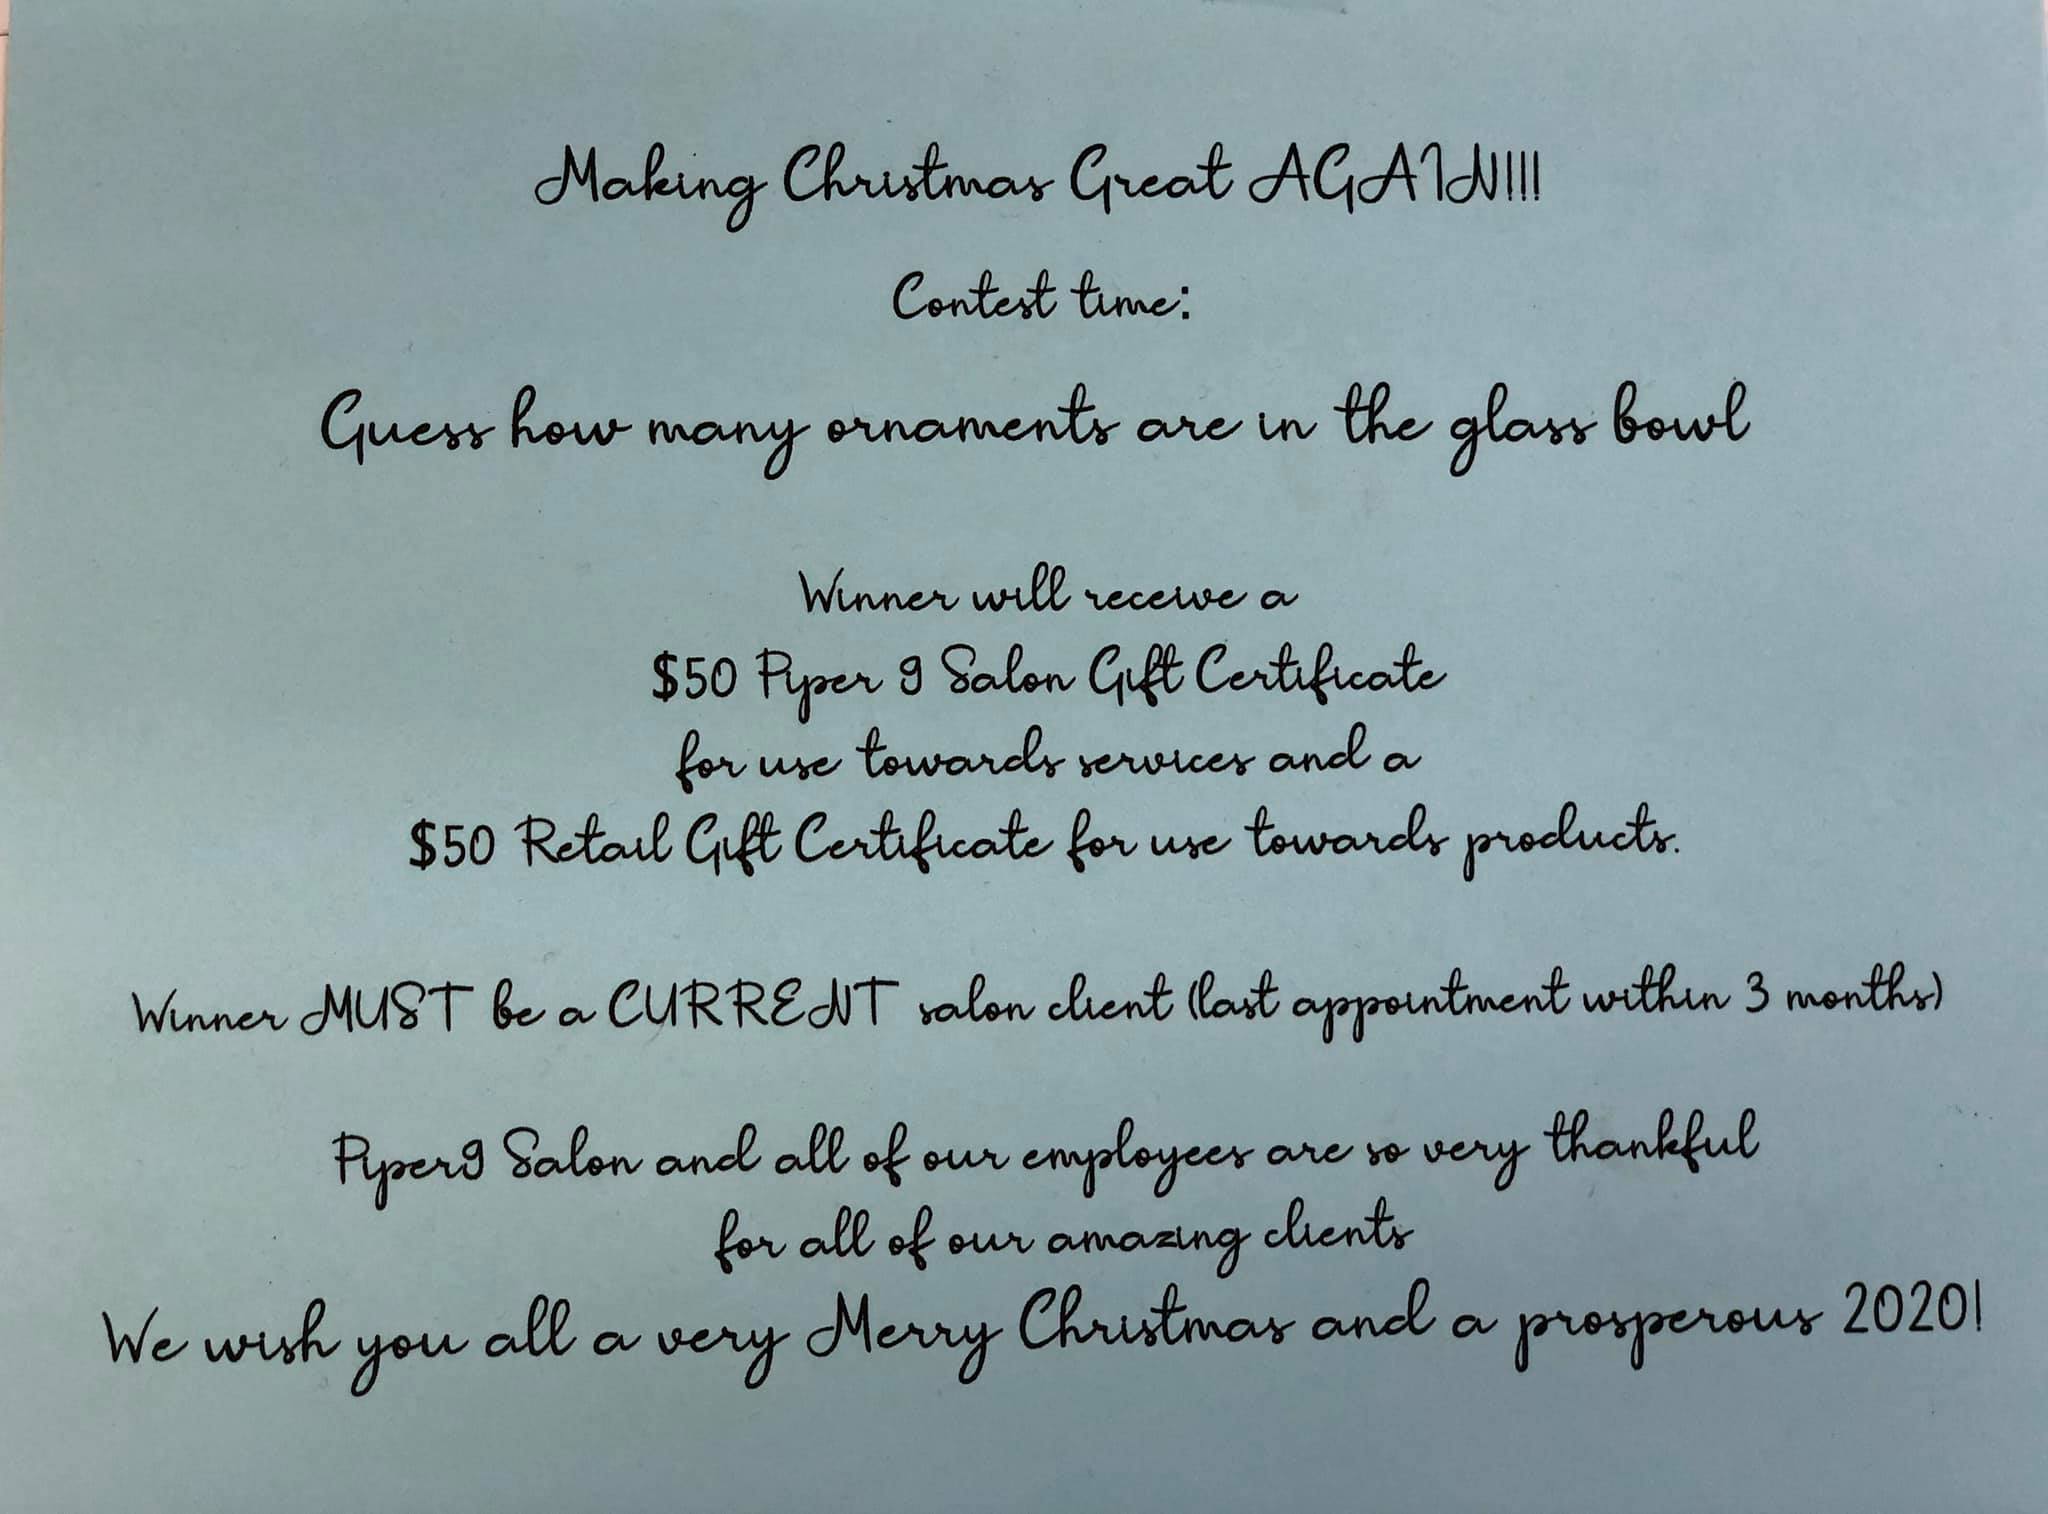 Making Christmas Great AGAIN!!!
Contest time:
Guess how many ornaments are in the glass bowl
Winner will receive a
$50 Piper 9 Salon Gift Certificate
for use towards services and a
$50 Retail Gift Certificate for use towards products.
Winner MUST be a CURRENT salon client (last appointment within 3 months)
Piper9 Salon and all of our employees are so very thankful
for all of our amazing clients
We wish you all a very Merry Christmas and a prosperous 2020!